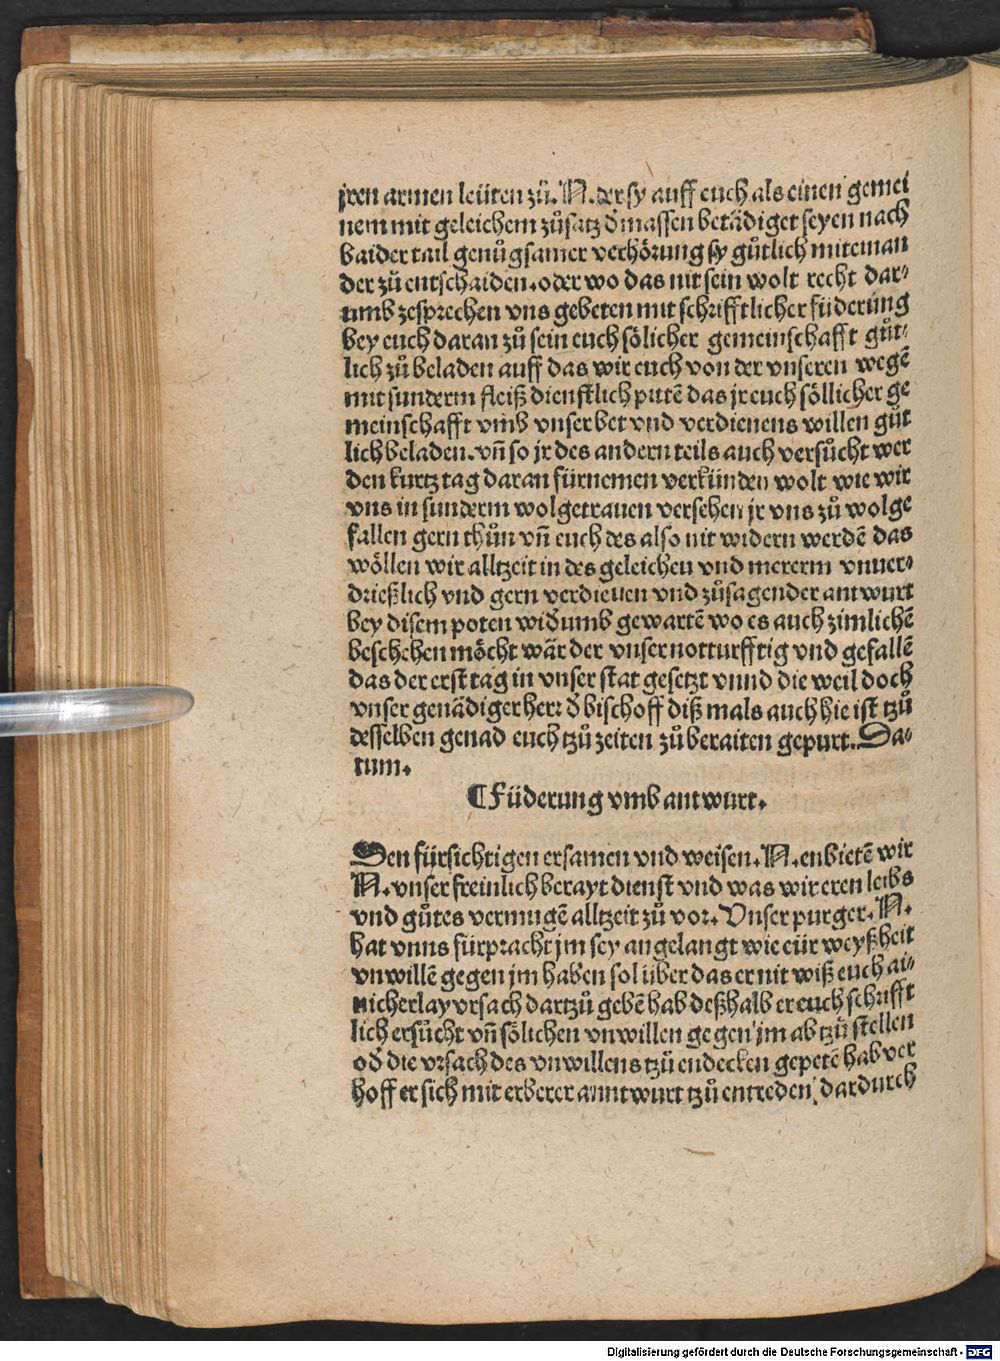 jren armen leüten zů. N. der sy auff euch als einen gemei
nem mit geleichem zůsatz d̕massen betädiget seyen nach
baider tail genůgsamer verhörung sy gůtlich miteinan
der zů entschaiden. oder wo das nit sein wolt recht dar⸗
umb zesprechen vns gebeten mit schrifftlicher füderung
bey euch daran zů sein euch sölicher gemeinschafft gůt⸗
lich zů beladen auff das wir euch von der vnseren wegē
mit sunderm fleiß dienstlich pittē das jr euch söllicher ge
meinschafft vmb vnser bet vnd verdienens willen gůt
lich beladen. vn̄ so jr des andern teils auch versůcht wer
den kurtz tag daran fürnemen verkünden wolt wie wir
vns in sunderm wolgetrauen versehen jr vns zů wolge
fallen gern thůn vn̄ euch des also nit widern werdē das
wöllen wir alltzeit in des geleichen vnd mererm vnuer⸗
drießlich vnd gern verdienen vnd zůsagender antwurt
bey disem poten wid̕umb gewartē wo es auch zimlichē
beschehen möcht wär der vnser notturfftig vnd gefallē
das der erst tag in vnser stat gesetzt vnnd die weil doch
vnser genädiger herr d̕ bischoff diß mals auch hie ist tzů
desselben genad euch tzů zeiten zů beraiten gepurt. Da⸗
tum.
¶ Füderung vmb antwurt.
Den fürsichtigen ersamen vnd weisen. N. enbietē wir
N. vnser freinlich berayt dienst vnd was wir eren leibs
vnd gůtes vermugē alltzeit zů vor. Vnser purger. N.
hat vnns fürpracht jm sey angelangt wie eür weyßheit
vnwillē gegen jm haben sol über das er nit wiß euch ai⸗
nicherlay vrsach dartzů gebē hab deßhalb er euch schrifft
lich ersůcht vn̄ sölichen vnwillen gegen jm ab tzů stellen
od̕ die vrsach des vnwillens tzů endecken gepetē hab ver
hoff er sich mit erberer anntwurt tzů entreden dardurch
Digitalisierung gefördert durch die Deutsche Forschungsgemeinschaft - DFG